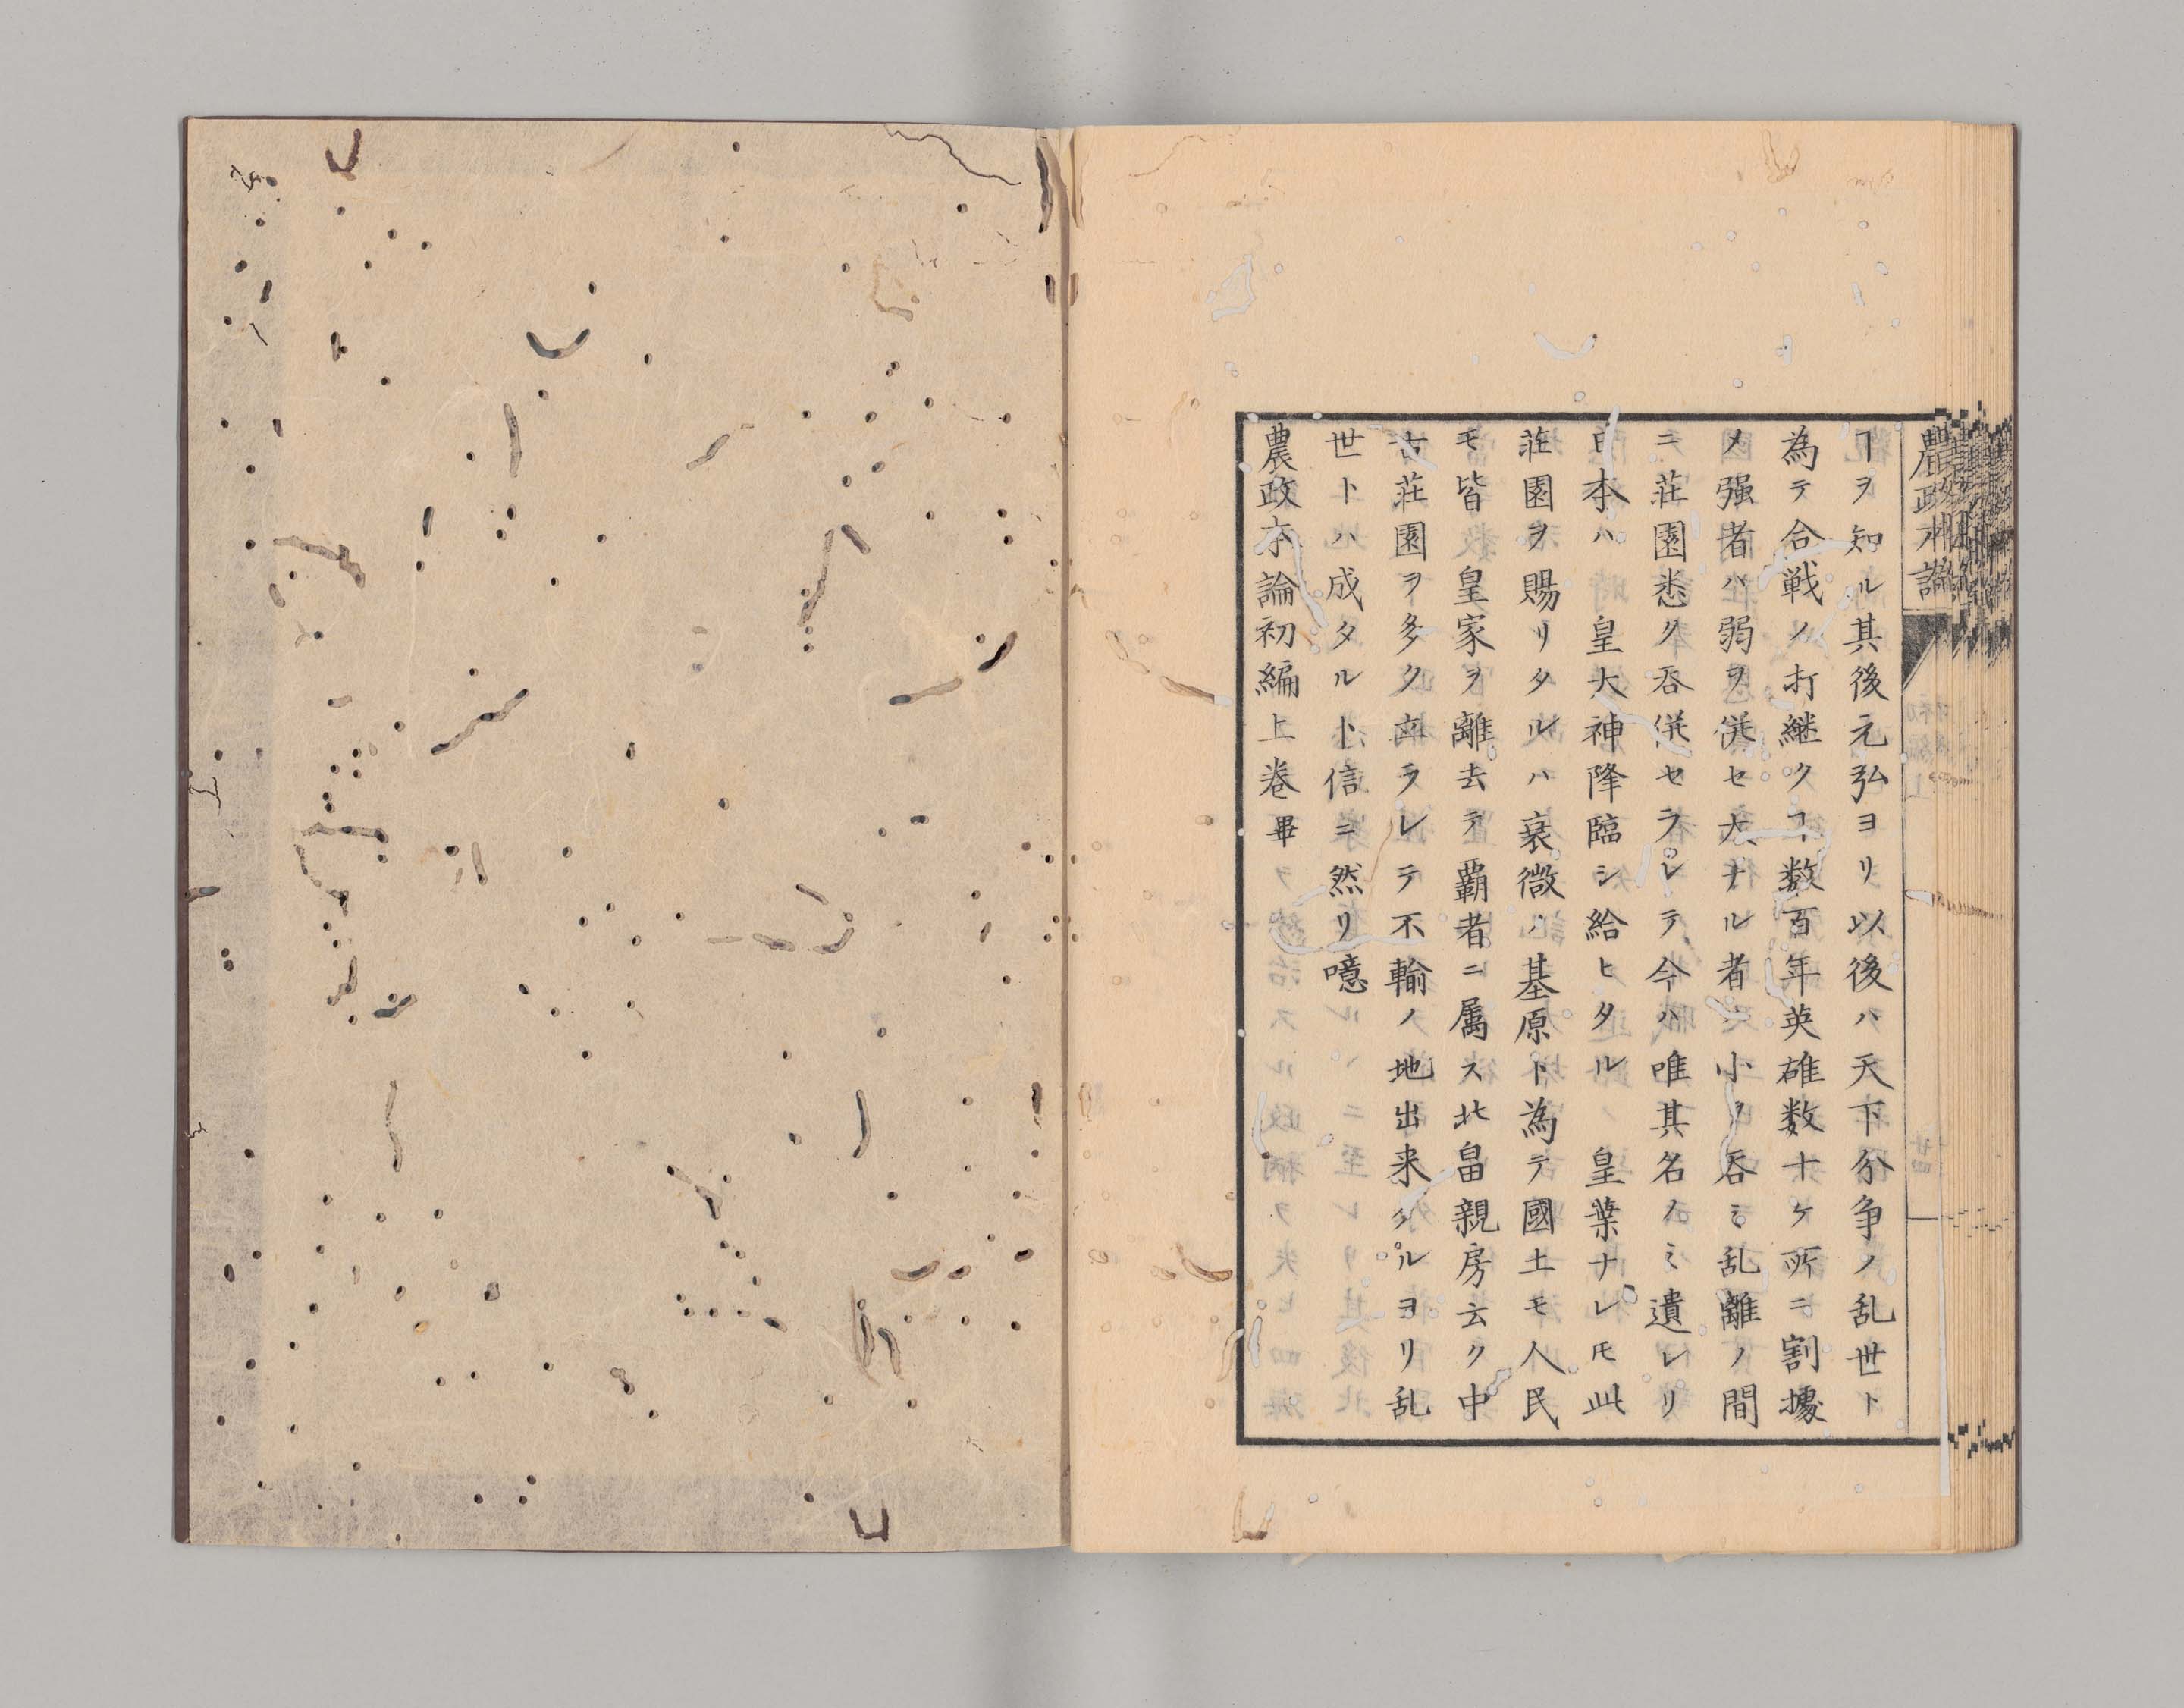 農政本論
ヿヲ知ル其後元弘ヨリ以後ハ天下分争ノ乱世ト
為テ合戦ノ打継クヿ数百年英雄数十ケ所ニ割據
メ强者ハ弱ヲ併セ大ナル者ハ小ヲ呑ミ乱離ノ間
ニ荘園悉ク呑併セラレテ今ハ唯其名ノミ遺レリ
日本ハ 皇大神降臨シ給ヒタル 皇葉ナレ𪜈此
荘園ヲ賜リタルハ衰微ノ基原ト為テ國土モ人民
モ皆皇家ヲ離去テ覇者ニ属ス北畠親房云ク中
古荘園ヲ多ク立ラレテ不輸ノ地出来タルヨリ乱
世トハ成タルト信ニ然リ噫
農政本論初編上巻畢